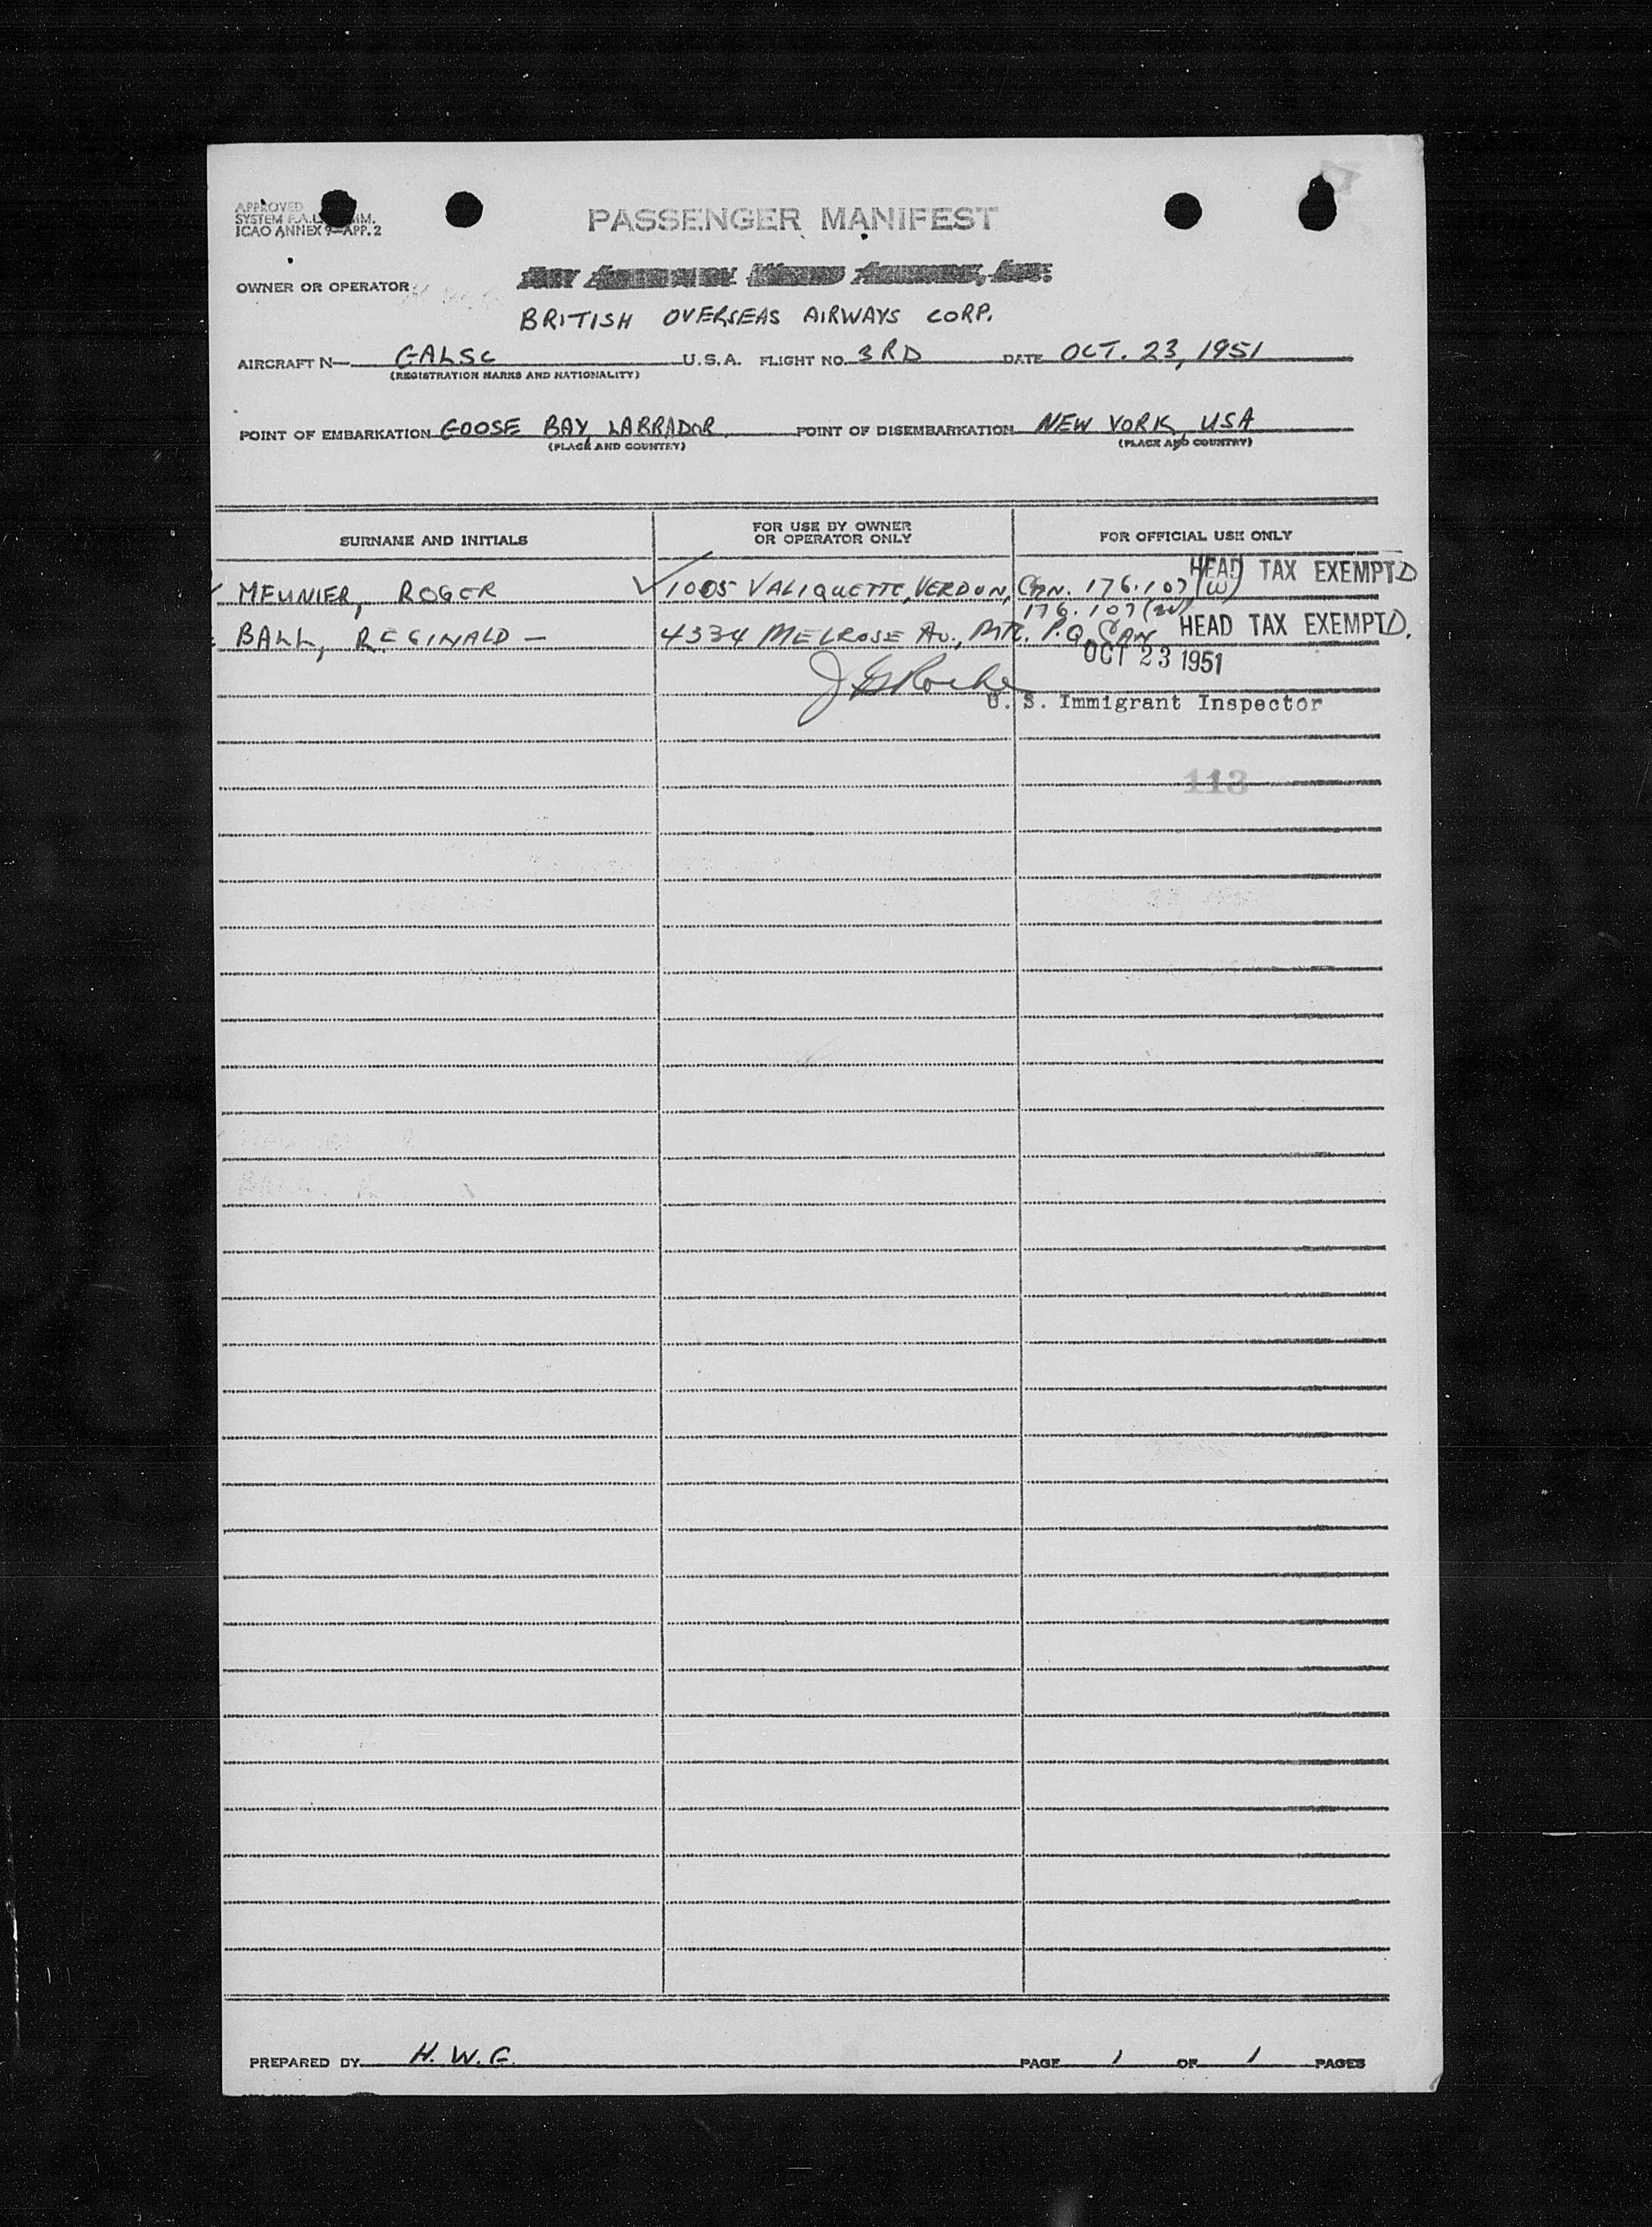 APPROVED
SYSTEM F.A.L. COMM.
ICAO ANNEX 9—APP. 2
PASSENGER MANIFEST
OWNER OR OPERATOR
BRITISH OVERSEAS AIRWAYS CORP.
AIRCRAFT N— GALSC U.S.A. FLIGHT NO. 3RD DATE OCT. 23, 1951
(REGISTRATION MARKS AND NATIONALITY)
POINT OF EMBARKATION GOOSE BAY, LABRADOR POINT OF DISEMBARKATION NEW YORK, USA
(PLACE AND COUNTRY) (PLACE AND COUNTRY)
SURNAME AND INITIALS FOR USE BY OWNER OR OPERATOR ONLY FOR OFFICIAL USE ONLY
MEUNIER, ROGER 1005 VALIQUETTE, VERDUN, CAN. 176.107(W) HEAD TAX EXEMPTD
176.107(W)
BALL, REGINALD — 4334 MELROSE AV., MTR. P.Q. CAN HEAD TAX EXEMPTD.
OCT 23 1951
U. S. Immigrant Inspector
113
PREPARED BY H. W. G. PAGE 1 OF 1 PAGES